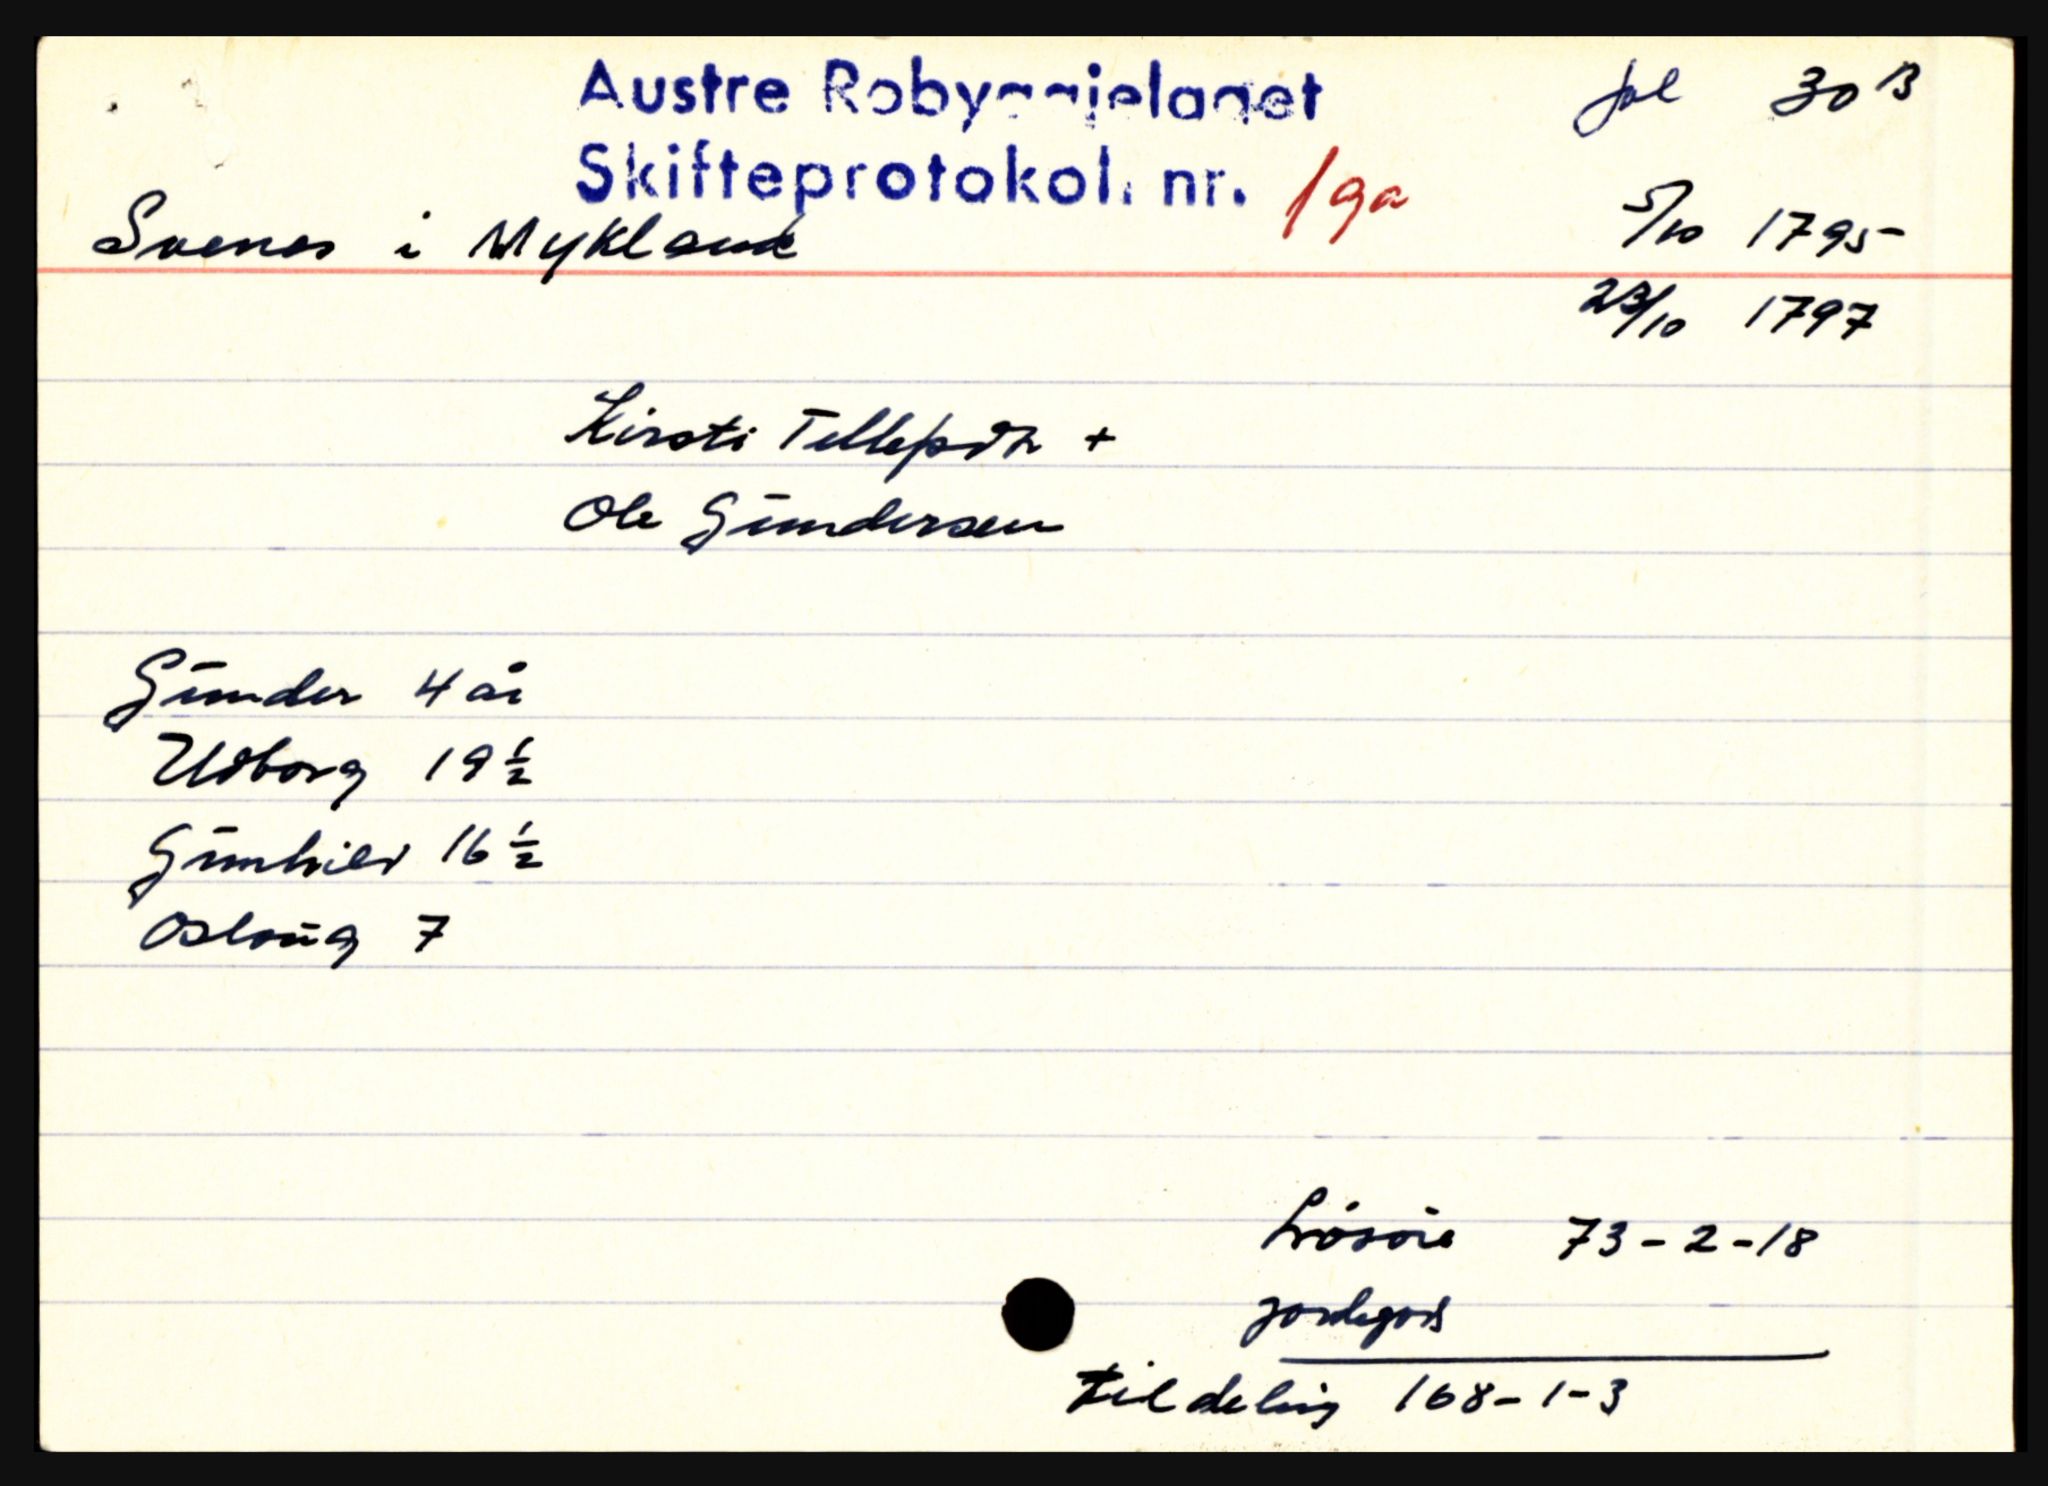 Austre Robyggjelaget fol 30 B
Skifteprotokoll nr. 19a 5/10 1795
Svenes i Mykland
23/10 1797
Kirsti Tellefsdtr +
Ole Gundersen
Gunder 4 år
Udborg 19 1/2
Gunhild 16 1/2
Osloug 7
Lösöre 73-2-18
jordegods
til deling 168-1-3